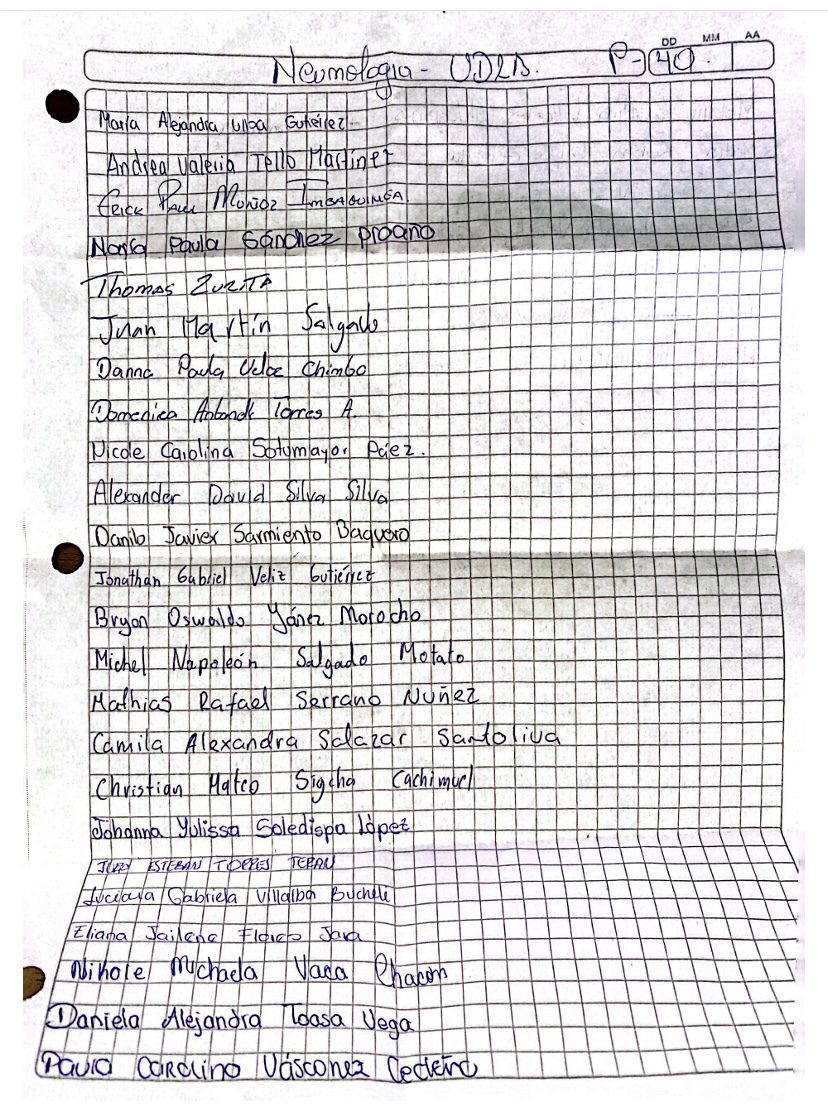 Neumología - UDLA. P-40
DD MM AA
María Alejandra Ulloa Gutiérrez
Andrea Valeria Tello Martínez
Erick Paul Muñoz Imbaquinga
María Paula Sánchez Proaño
Thomas Zurita
Juan Martín Salgado
Danna Paula Veloz Chimbo
Domenica Torres A.
Nicole Carolina Sotomayor Páez.
Alexander David Silva Silva
Danilo Javier Sarmiento Baquero
Jonathan Gabriel Veliz Gutiérrez
Bryan Oswaldo Yánez Morocho
Michel Napoleón Salgado Motato
Mathias Rafael Serrano Nuñez
Camila Alexandra Salazar Santoliva
Christian Mateo Sigcha Cachimuel
Johanna Yulissa Soledispa López
ESTEBAN TORRES TERAN
Luciana Gabriela Villalba Bucheli
Eliana Jailene Flores Jara
Nihole Michaela Vaca Chacon
Daniela Alejandra Toasa Vega
Paula Carolina Vásconez Cedeño